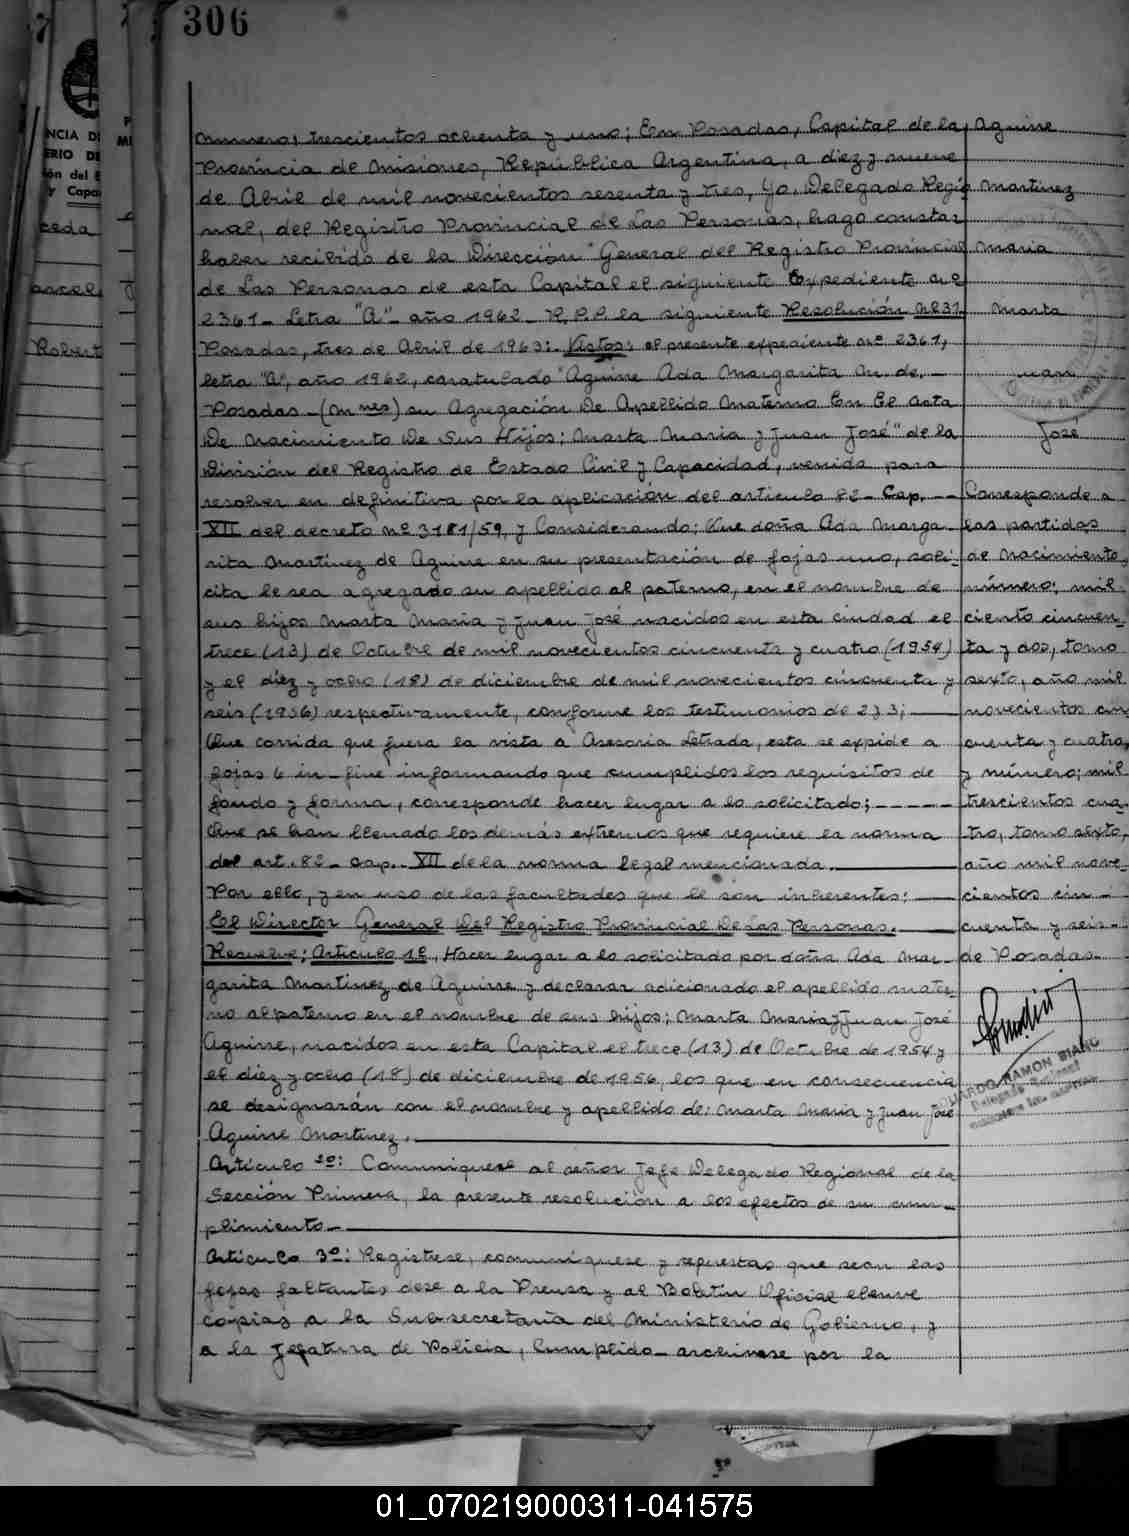 306
Numero; trescientos ochenta y uno; En Posadas, Capital de la
Provincia de Misiones, República Argentina, a diez y nueve
de Abril de mil novecientos sesenta y tres, Yo, Delegado Regio
nal, del Registro Provincial de Las Personas, hago constar
haber recibido de la Dirección General del Registro Provincial
de Las Personas de esta Capital el siguiente Expediente nº
2361- Letra "A"- año 1962- R.P.P. la siguiente Resolución Nº 31
Posadas, tres de Abril de 1963:- Vistos: el presente expediente nº 2361,
letra "A", año 1962, caratulado "Aguirre Ada Margarita M. de.-
Posadas -(Mnes) su Agregación De Apellido Materno En El Acta
De Nacimiento De Sus Hijos; Marta Maria y Juan José" de la
División del Registro de Estado Civil y Capacidad, venido para
resolver en definitiva por la aplicación del articulo 82- Cap. --
XII del decreto nº 3181/59, y Considerando; Que doña Ada Marga-
rita Martínez de Aguirre en su presentación de fojas uno, soli-
cita le sea agregado su apellido al paterno, en el nombre de
sus hijos Marta María y Juan José nacidos en esta ciudad el
trece (13) de Octubre de mil novecientos cincuenta y cuatro (1954)
y el diez y ocho (18) de diciembre de mil novecientos cincuenta y
seis (1956) respectivamente, conforme los testimonios de 2 y 3;
Que corrida que fuera la vista a Asesoria Letrada, esta se expide a
fojas 6 in-fine informando que cumplidos los requisitos de
fondo y forma, corresponde hacer lugar a lo solicitado; -----
Que se han llenado los demás extremos que requiere la norma
del art. 82- cap.- XII de la norma legal mencionada.
Por ello, y en uso de las facultades que le son inherentes:
El Director General Del Registro Provincial De Las Personas.
Resuelve; Artículo 1º, Hacer lugar a lo solicitado por doña Ada Mar-
garita Martínez de Aguirre y declarar adicionado el apellido mater-
no al paterno en el nombre de sus hijos; Marta Maria y Juan José
Aguirre, nacidos en esta Capital el trece (13) de Octubre de 1954 y
el diez y ocho (18) de diciembre de 1956, los que en consecuencia
se designarán con el nombre y apellido de: Marta Maria y Juan José
Aguirre Martinez.
Artículo 2º: Comuníquese al señor Jefe Delegado Regional de la
Sección Primera, la presente resolución a los efectos de su cum-
plimiento-
Artículo 3º: Registrese, comuníquese y repuestas que sean las
fojas faltantes dese a la Prensa y al Boletín Oficial eleve
copias a la Subsecretaría del Ministerio de Gobierno, y
a la Jefatura de Policia, Cumplido- archívese por la
Aguirre
Martinez
Maria
Marta
Juan
José
Corresponde a
las partidas
de nacimiento,
número; mil
ciento cincuen-
ta y dos, tomo
sexto, año mil
novecientos cin
cuenta y cuatro,
y número; mil
trescientos cua-
tro, tomo sexto,
año mil nove-
cientos cin-
cuenta y seis-
de Posadas-
RAMON BIANC
01_070219000311-041575